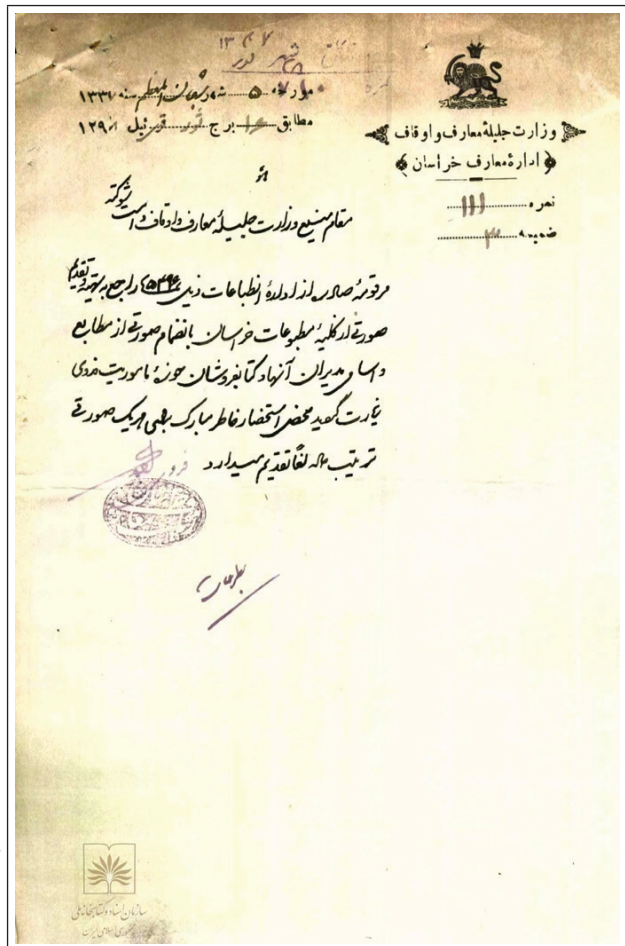 وزارت جلیلهٔ معارف و اوقاف
ادارهٔ معارف خراسان
نمره ۱۱۱
ضمیمه ۳
مورخه ۵ شهر شعبان المعظم سنه ۱۳۳۷
مطابق برج ثور ئیل ۱۲۹۸
مقام منیع وزارت جلیلهٔ معارف و اوقاف دامت شوکته
مرقومهٔ صادره از ادارهٔ انطباعات ذیل ۵۳۹۶ راجع به تهیه و تقدیم
صورتی از کلیهٔ مطبوعات خراسان بانضمام صورتی از مطابع
و اسامی مدیران آنها و کتابفروشان حوزهٔ ماموریت فدوی
زیارت گردید محض استحضار خاطر مبارک برای هریک صورتی
ترتیب داده لفاً تقدیم میدارد
سازمان اسناد و کتابخانه ملی
جمهوری اسلامی ایران